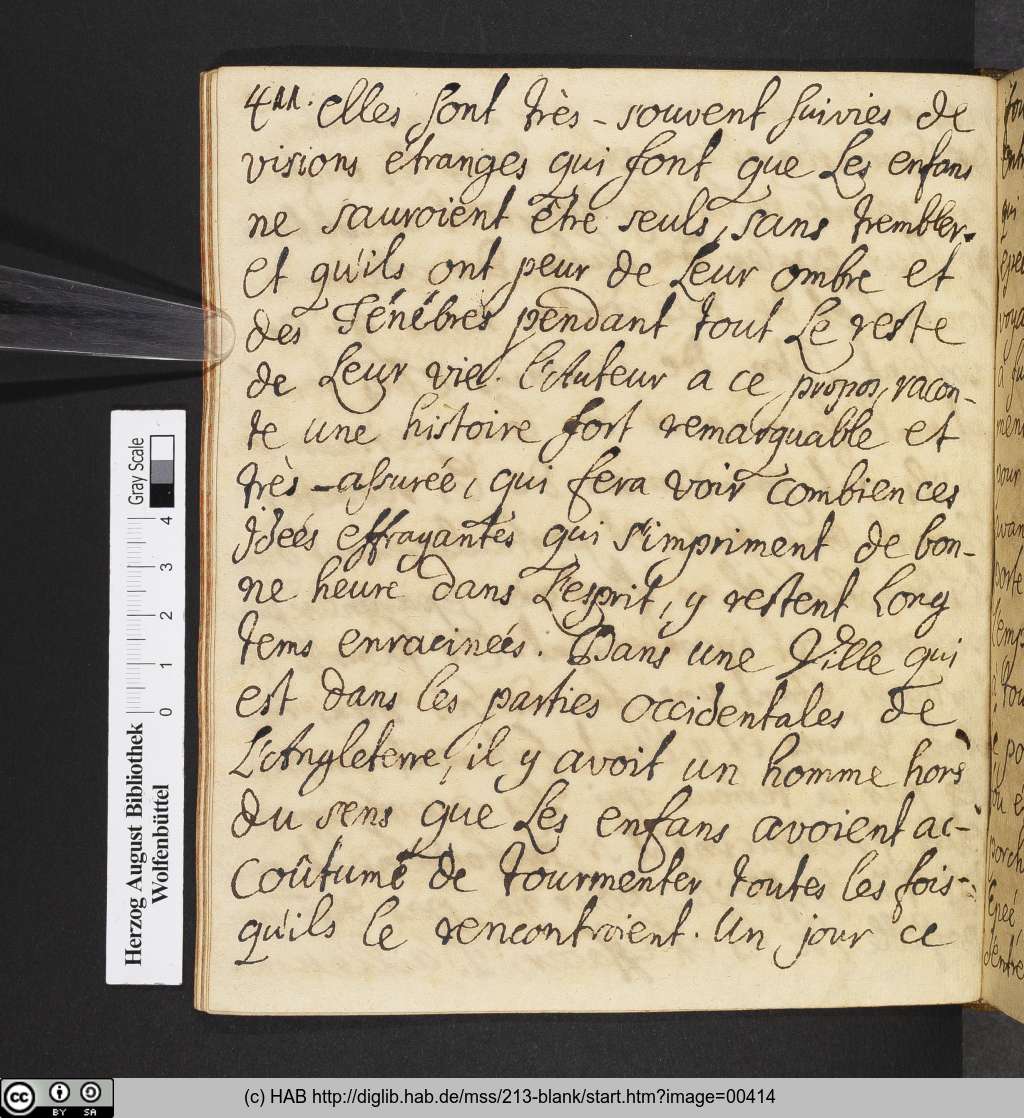 411. elles sont très-souvent suivies de
visions étranges qui font que Les enfans
ne sauroient être seuls, sans trembler.
et qu'ils ont peur de Leur ombre et
des Ténébres pendant tout Le reste
de Leur vie. L'Auteur a ce propos, racon-
te une histoire fort remarquable et
très-assurée, qui fera voir combien ces
idées effrayantes qui s'impriment de bon-
ne heure dans L'esprit, y restent Long
tems enracinées. Dans une Ville qui
est dans les parties Occidentales de
L'Angleterre, il y avoit un homme hors
du sens que Les enfans avoient ac-
coûtumé de tourmenter toutes les fois-
qu'ils le rencontroient. Un jour ce
Herzog August Bibliothek
Wolfenbüttel
Gray Scale
0 1 2 3 4
cc BY SA
(c) HAB http://diglib.hab.de/mss/213-blank/start.htm?image=00414